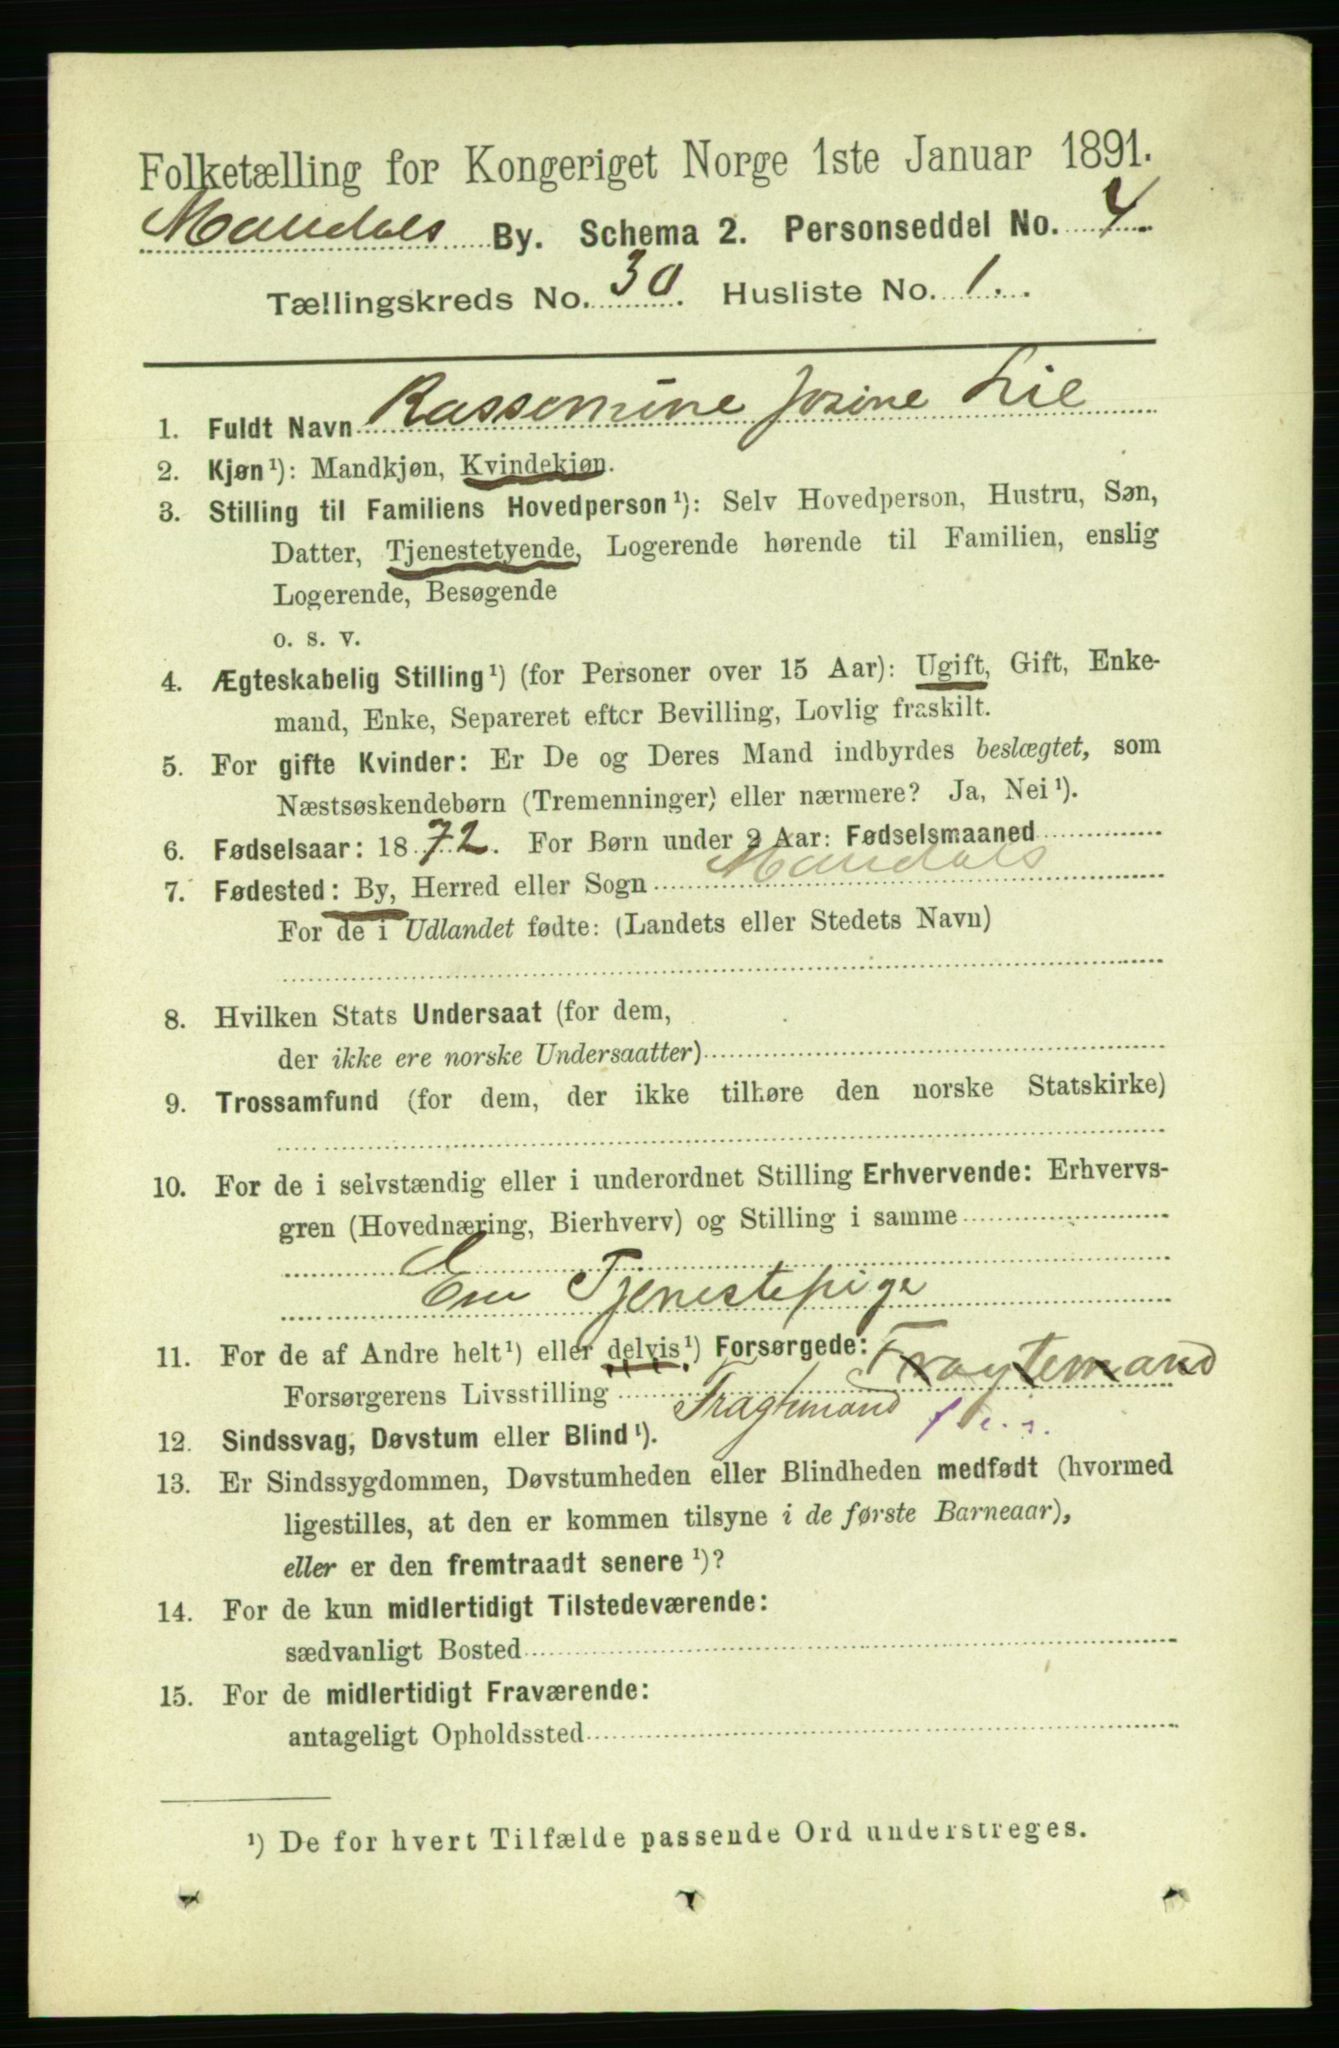 Folketælling for Kongeriget Norge 1ste Januar 1891.
Mandals By. Schema 2. Personseddel No. 4.
Tællingskreds No. 30. Husliste No. 1.
1. Fuldt Navn Rassemine Josine Lie
2. Kjøn¹): Mandkjøn, Kvindekjøn.
3. Stilling til Familiens Hovedperson¹): Selv Hovedperson, Hustru, Søn,
Datter, Tjenestetyende, Logerende hørende til Familien, enslig
Logerende, Besøgende
o. s. v.
4. Ægteskabelig Stilling¹) (for Personer over 15 Aar): Ugift, Gift, Enke-
mand, Enke, Separeret efter Bevilling, Lovlig fraskilt.
5. For gifte Kvinder: Er De og Deres Mand indbyrdes beslægtet, som
Næstsøskendebørn (Tremenninger) eller nærmere? Ja, Nei¹).
6. Fødselsaar: 1872. For Børn under 2 Aar: Fødselsmaaned
7. Fødested: By, Herred eller Sogn Mandals
For de i Udlandet fødte: (Landets eller Stedets Navn)
8. Hvilken Stats Undersaat (for dem,
der ikke ere norske Undersaatter)
9. Trossamfund (for dem, der ikke tilhøre den norske Statskirke)
10. For de i selvstændig eller i underordnet Stilling Erhvervende: Erhvervs-
gren (Hovednæring, Bierhverv) og Stilling i samme
Em Tjenestepige
11. For de af Andre helt¹) eller delvis¹) Forsørgede:
Forsørgerens Livsstilling Fragtemand
12. Sindssvag, Døvstum eller Blind¹).
13. Er Sindssygdommen, Døvstumheden eller Blindheden medfødt (hvormed
ligestilles, at den er kommen tilsyne i de første Barneaar),
eller er den fremtraadt senere¹)?
14. For de kun midlertidigt Tilstedeværende:
sædvanligt Bosted
15. For de midlertidigt Fraværende:
antageligt Opholdssted
¹) De for hvert Tilfælde passende Ord understreges.